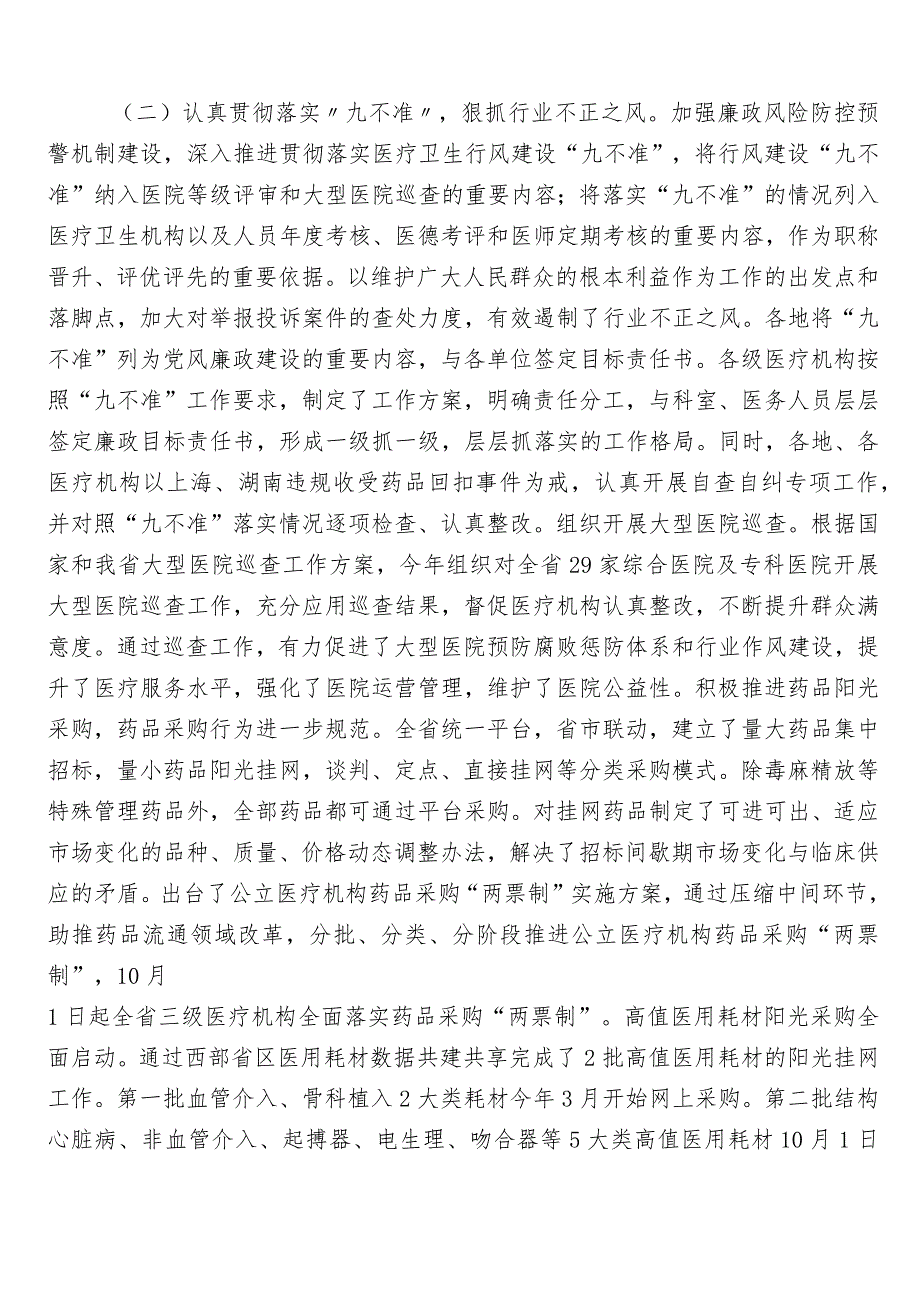 （二）认真贯彻落实〃九不准〃，狠抓行业不正之风。加强廉政风险防控预
警机制建设，深入推进贯彻落实医疗卫生行风建设“九不准”，将行风建设“九不
准”纳入医院等级评审和大型医院巡查的重要内容；将落实“九不准”的情况列入
医疗卫生机构以及人员年度考核、医德考评和医师定期考核的重要内容，作为职称
晋升、评优评先的重要依据。以维护广大人民群众的根本利益作为工作的出发点和
落脚点，加大对举报投诉案件的查处力度，有效遏制了行业不正之风。各地将“九
不准”列为党风廉政建设的重要内容，与各单位签定目标责任书。各级医疗机构按
照“九不准”工作要求，制定了工作方案，明确责任分工，与科室、医务人员层层
签定廉政目标责任书，形成一级抓一级，层层抓落实的工作格局。同时，各地、各
医疗机构以上海、湖南违规收受药品回扣事件为戒，认真开展自查自纠专项工作，
并对照“九不准”落实情况逐项检查、认真整改。组织开展大型医院巡查。根据国
家和我省大型医院巡查工作方案，今年组织对全省29家综合医院及专科医院开展
大型医院巡查工作，充分应用巡查结果，督促医疗机构认真整改，不断提升群众满
意度。通过巡查工作，有力促进了大型医院预防腐败惩防体系和行业作风建设，提
升了医疗服务水平，强化了医院运营管理，维护了医院公益性。积极推进药品阳光
采购，药品采购行为进一步规范。全省统一平台，省市联动，建立了量大药品集中
招标，量小药品阳光挂网，谈判、定点、直接挂网等分类采购模式。除毒麻精放等
特殊管理药品外，全部药品都可通过平台采购。对挂网药品制定了可进可出、适应
市场变化的品种、质量、价格动态调整办法，解决了招标间歇期市场变化与临床供
应的矛盾。出台了公立医疗机构药品采购“两票制”实施方案，通过压缩中间环节，
助推药品流通领域改革，分批、分类、分阶段推进公立医疗机构药品采购“两票
制”，10月
1日起全省三级医疗机构全面落实药品采购“两票制”。高值医用耗材阳光采购全
面启动。通过西部省区医用耗材数据共建共享完成了2批高值医用耗材的阳光挂网
工作。第一批血管介入、骨科植入2大类耗材今年3月开始网上采购。第二批结构
心脏病、非血管介入、起搏器、电生理、吻合器等5大类高值医用耗材10月1日